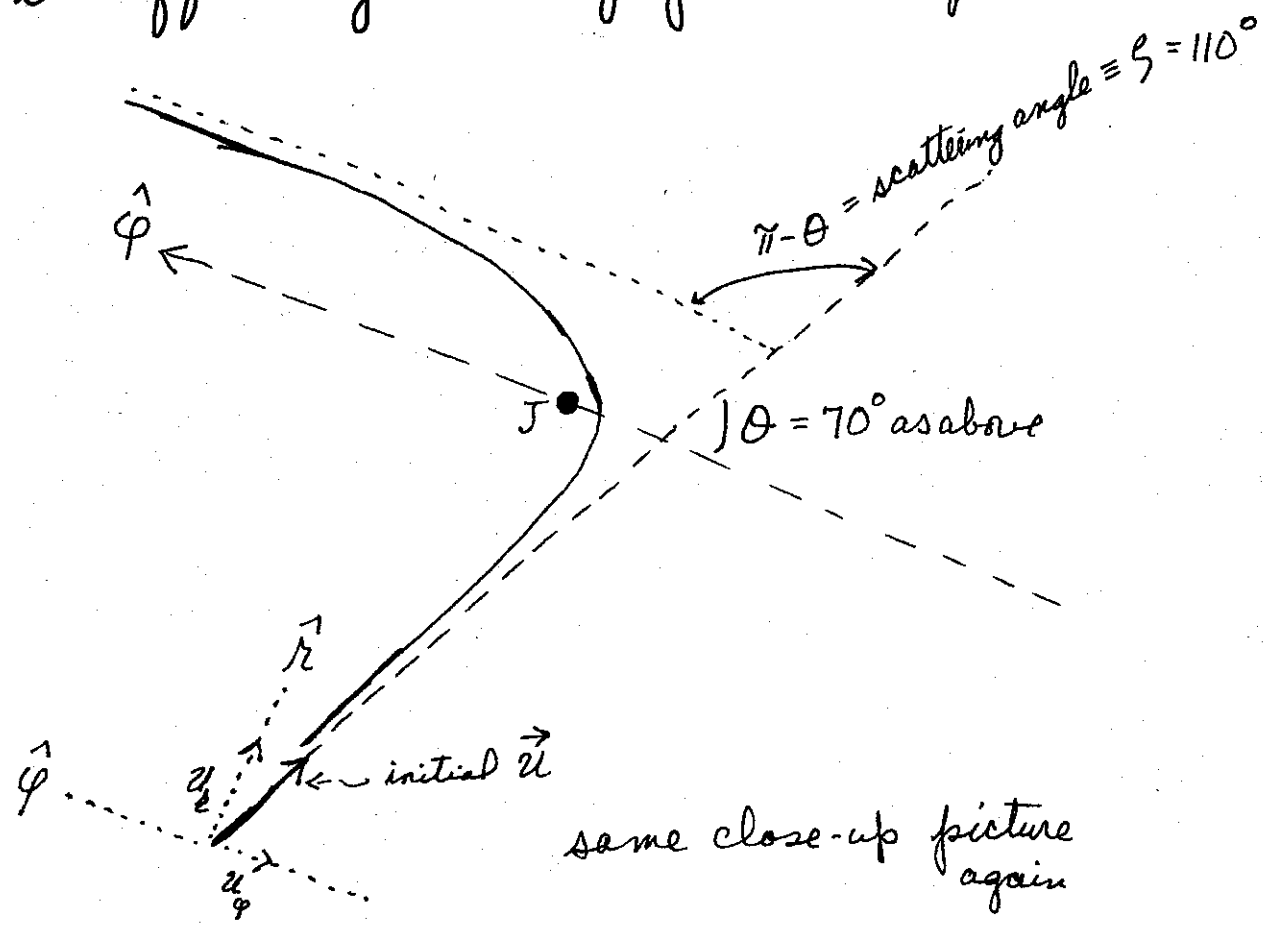 π-θ = scatteing angle ≡ ζ = 110°
φ̂
J
θ = 70° as above
r̂
φ̂
u_r
initial u⃗
u_φ
same close-up picture
again